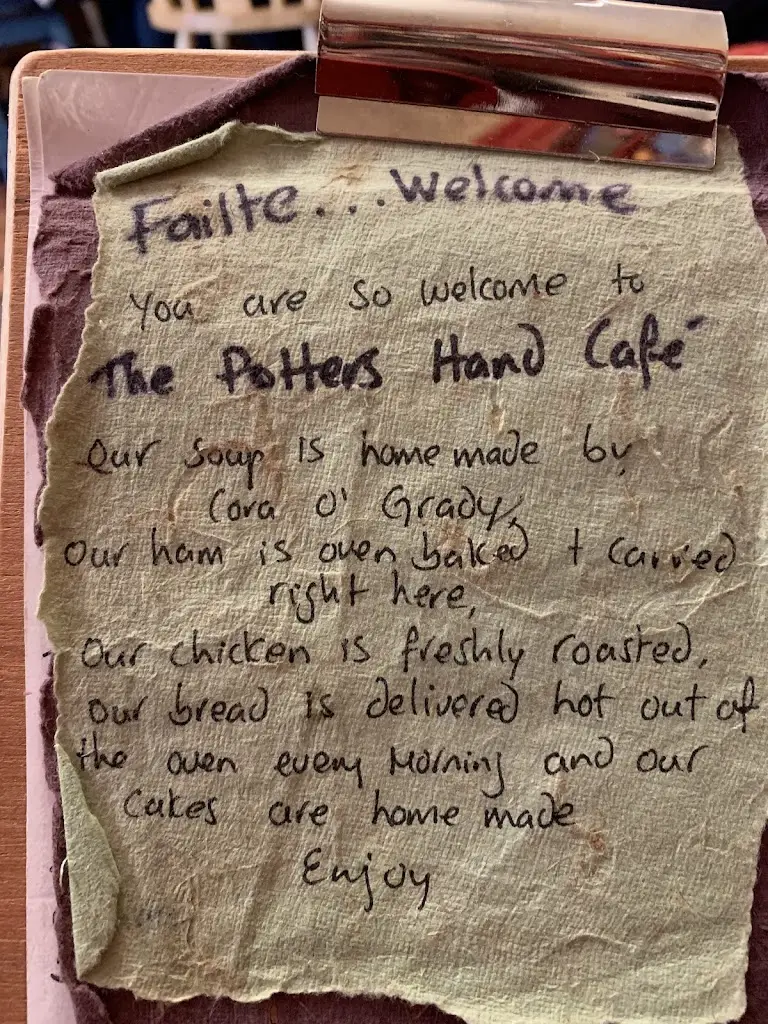 Failte...Welcome
You are so welcome to
The Potters Hand Café
Our soup is home made by
Cora O' Grady,
Our ham is oven baked + carved
right here,
Our chicken is freshly roasted,
our bread is delivered hot out of
the oven every Morning and our
Cakes are home made
Enjoy